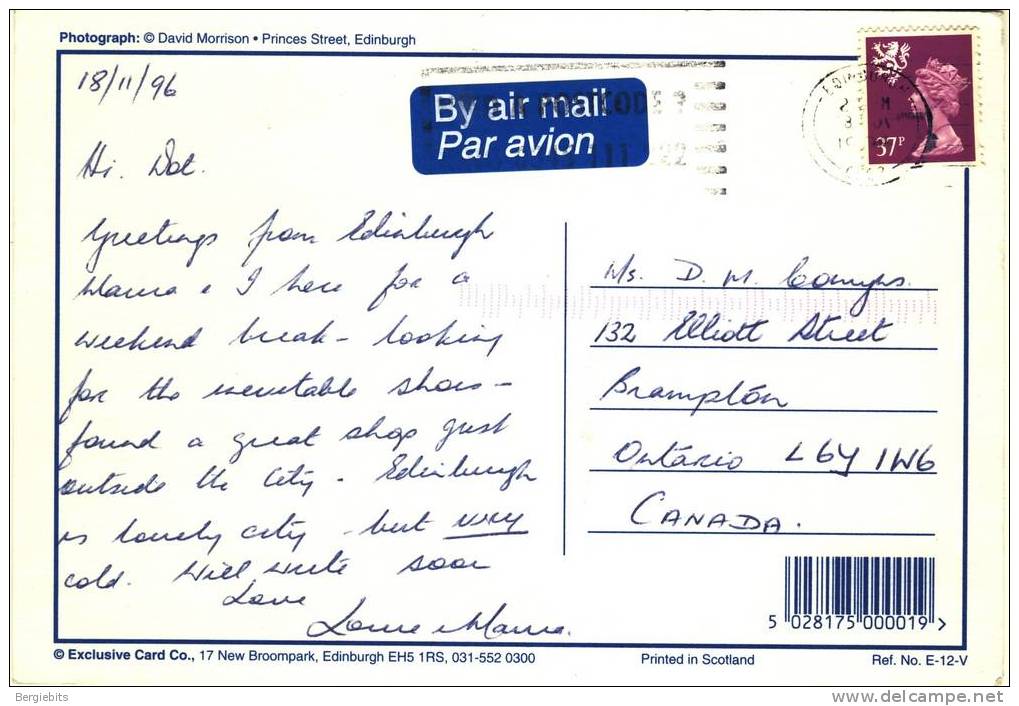 Photograph: © David Morrison • Princes Street, Edinburgh
18/11/96
By air mail
Par avion
37P
Hi. Dot.
Greetings from Edinburgh
& I here for a
weekend break - looking
for the inevitable shoes -
found a great shop just
outside the city. Edinburgh
is lovely city - but very
cold. Will write soon
Love
Ms. D. M.
132 Elliott Street
Brampton
Ontario L6Y 1W6
CANADA.
5 028175 000019 >
© Exclusive Card Co., 17 New Broompark, Edinburgh EH5 1RS, 031-552 0300
Printed in Scotland
Ref. No. E-12-V
Bergiebits
www.delcampe.net